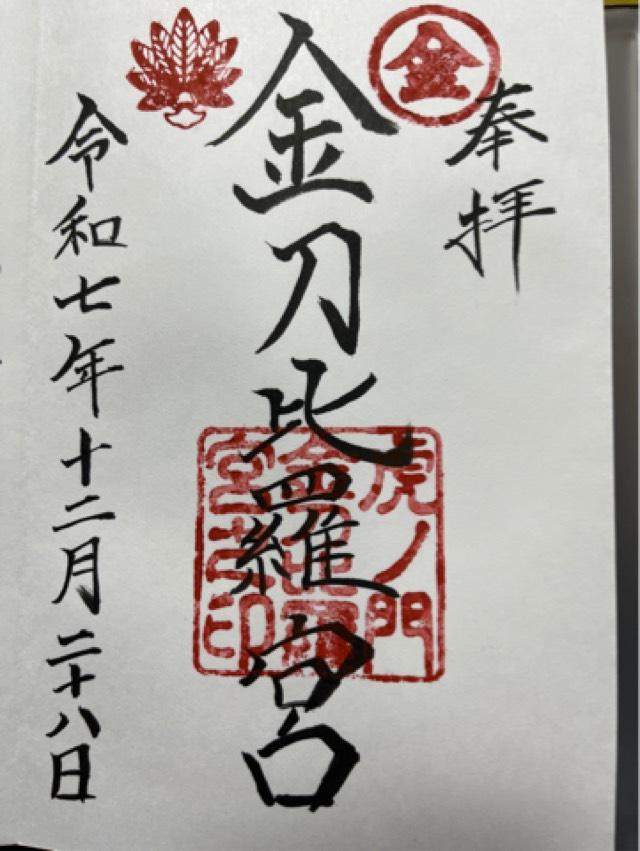 奉拝
金
金刀比羅宮
虎ノ門
金刀比羅
宮之印
令和七年十二月二十八日